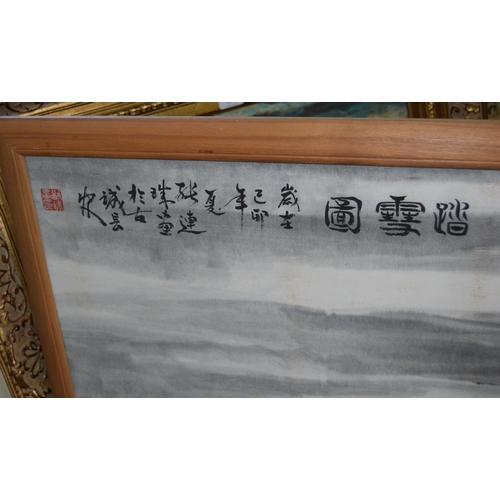 踏雪圖
歲在
己卯
年
夏
張連
珠畫
於古
城县